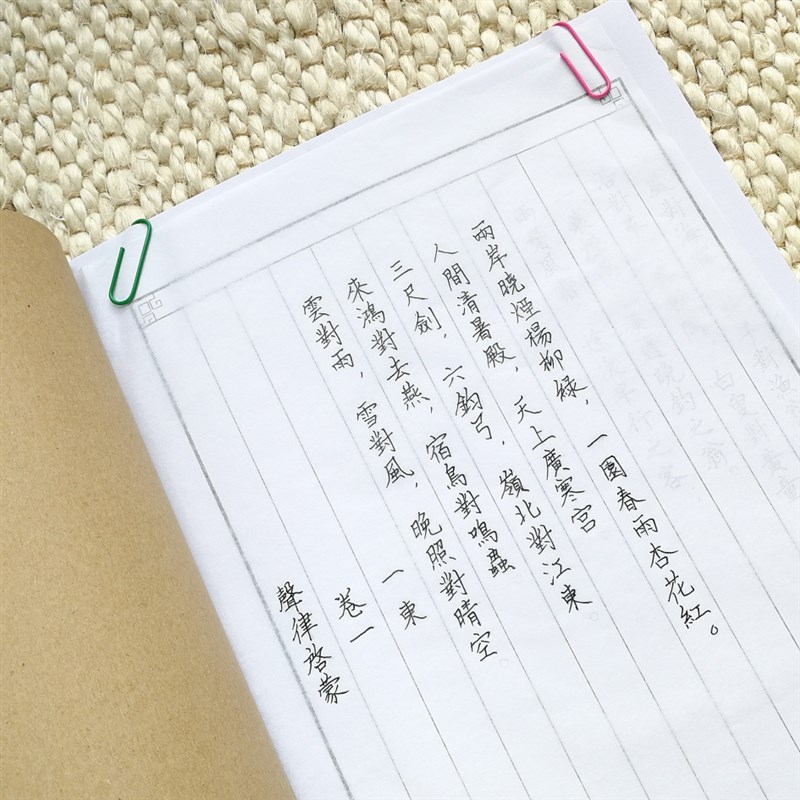 聲律啓蒙
卷一
一東
雲對雨，雪對風，晚照對晴空
來鴻對去燕，宿鳥對鳴蟲
三尺劍，六鈞弓，嶺北對江東。
人間清暑殿，天上廣寒宮
兩岸曉煙楊柳綠，一園春雨杏花紅。